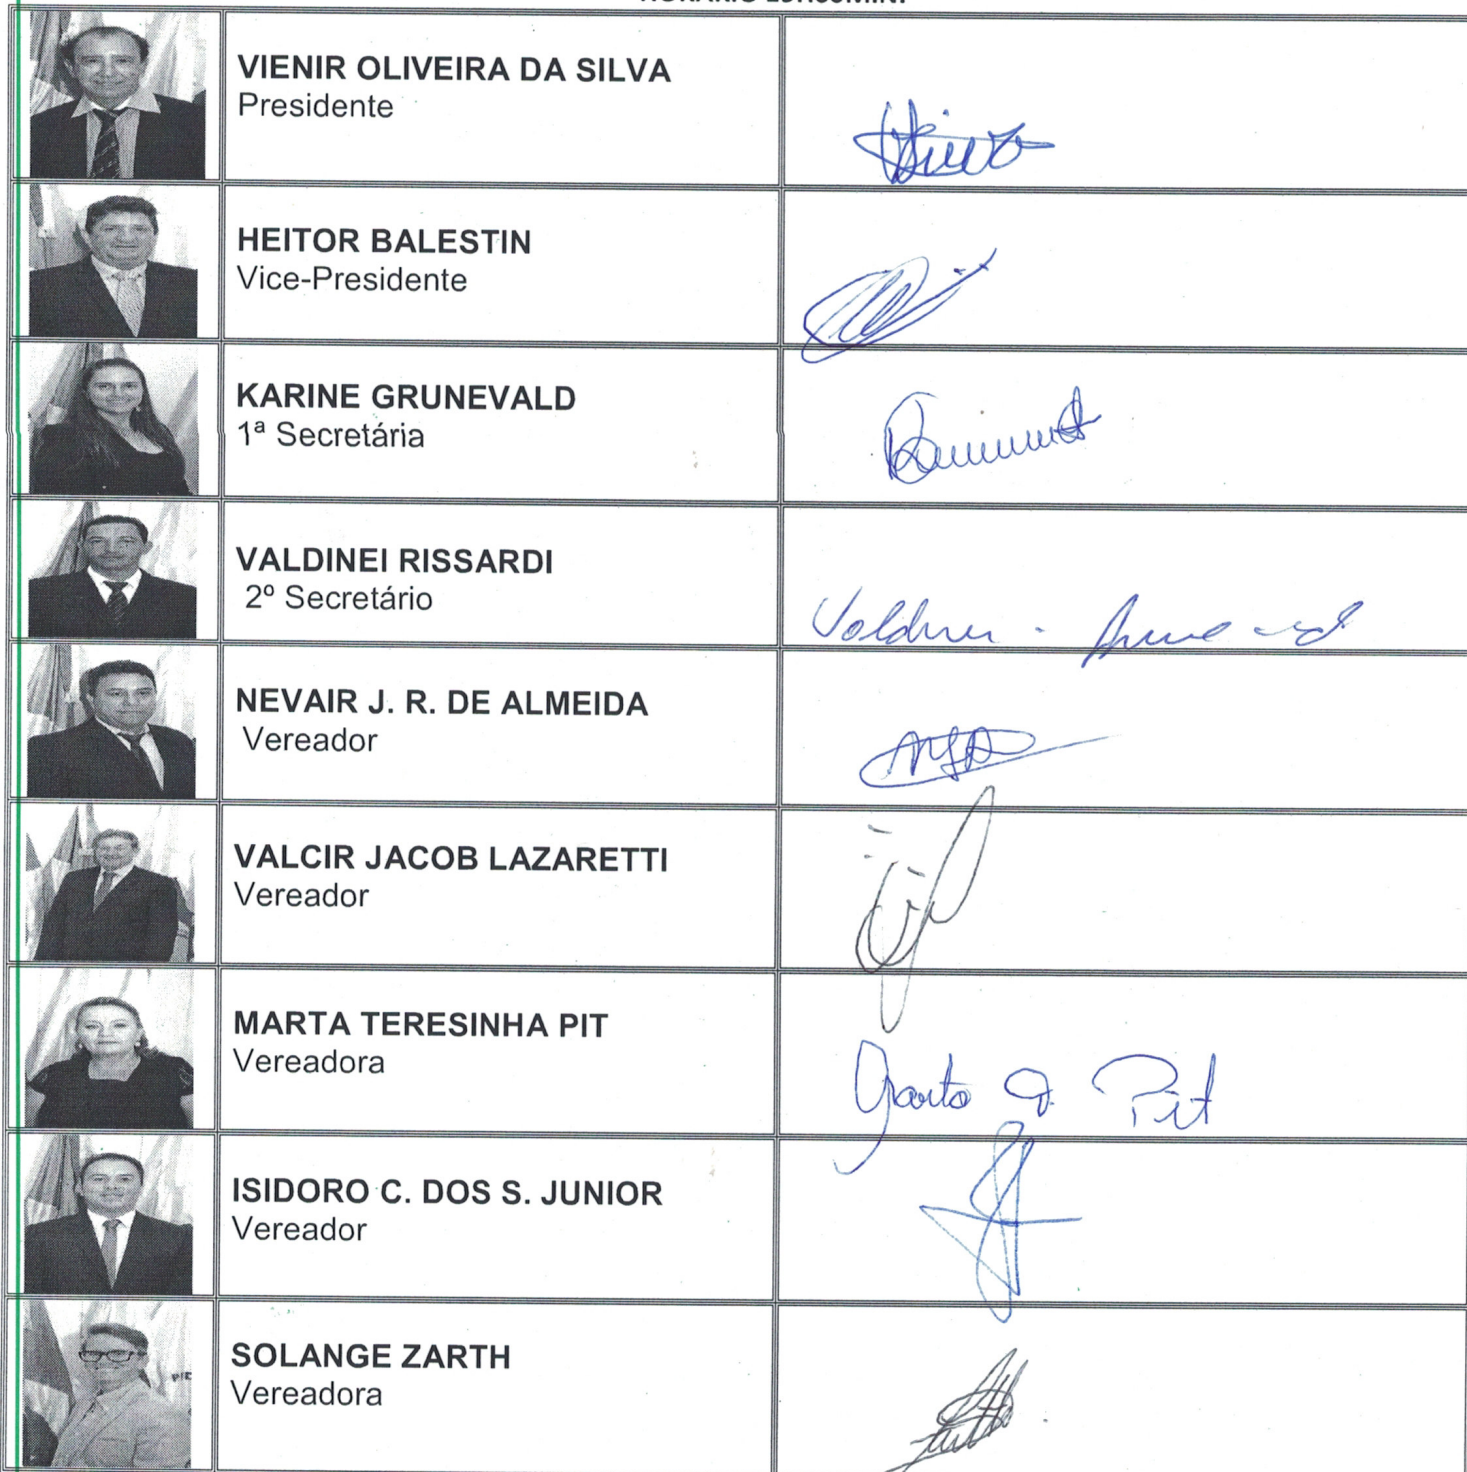 VIENIR OLIVEIRA DA SILVA
Presidente
HEITOR BALESTIN
Vice-Presidente
KARINE GRUNEVALD
1ª Secretária
VALDINEI RISSARDI
2º Secretário
NEVAIR J. R. DE ALMEIDA
Vereador
VALCIR JACOB LAZARETTI
Vereador
MARTA TERESINHA PIT
Vereadora
Marta T. Pit
ISIDORO C. DOS S. JUNIOR
Vereador
SOLANGE ZARTH
Vereadora